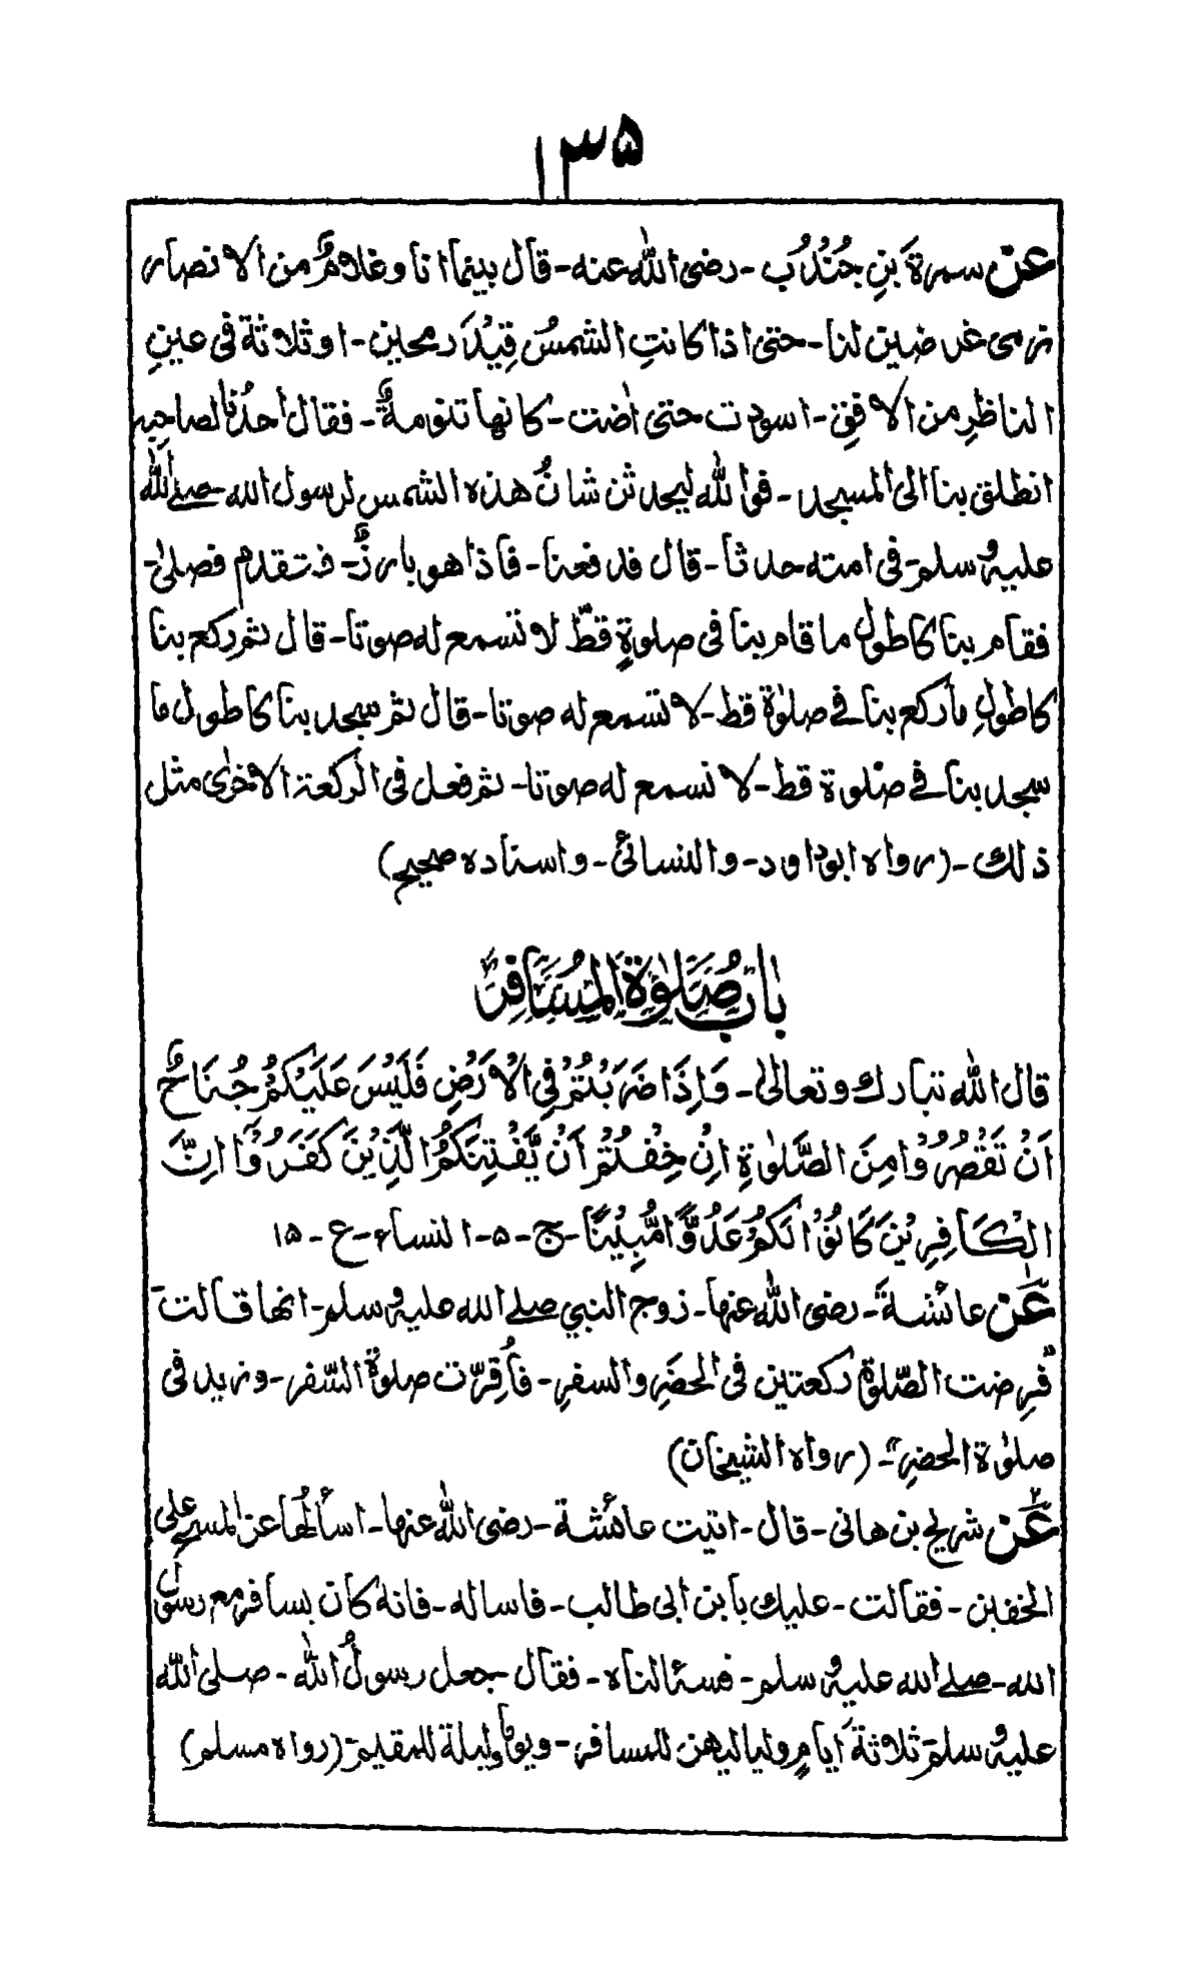 ۱۳۵
عن سمرةَ بنِ جُنْدُب - رضى الله عنه - قال بينما انا وغلامٌ من الانصار
نرمى غرضين لنا - حتى اذا كانتِ الشمسُ قِيْدَ رمحين - او ثلاثة فى عينِ
الناظرِ من الافقِ - اسودت حتى اٰضت - كانها تنومةٌ - فقال احدُنا لصاحبِه
انطلق بنا الى المسجد - فو الله ليحدثن شانُ هذه الشمس لرسول الله صلے الله
عليه وسلم - فى امته حدثا - قال فدفعنا - فاذا هو بارزٌ - فتقدم فصلىٰ -
فقام بنا كاطولِ ما قام بنا فى صلوةٍ قطّ لا نسمع له صوتا - قال ثم ركع بنا
كاطولِ ما ركع بنا فے صلوٰة قط - لا نسمع له صوتا - قال ثم سجد بنا كاطول ما
سجد بنا فے صلوة قط - لا نسمع له صوتا - ثم فعل فى الركعة الاخرىٰ مثل
ذلك - (رواه ابو داود - والنسائى - واسناده صحيح)
بابُ صَلوٰةِ المُسَافِرِ
قال الله تبارك وتعالىٰ - وَاِذَا ضَرَبْتُمْ فِى الْاَرْضِ فَلَيْسَ عَلَيْكُمْ جُنَاحٌ
اَنْ تَقْصُرُوْا مِنَ الصَّلوٰةِ اِنْ خِفْتُمْ اَنْ يَّفْتِنَكُمُ الَّذِيْنَ كَفَرُوْا اِنَّ
الْكَافِرِيْنَ كَانُوْا لَكُمْ عَدُوًّا مُّبِيْنًا - ج - ۵ - النساء - ع - ۱۵
عَن عائشةَ - رضى الله عنها - زوج النبي صلے الله عليه وسلم - انها قالت
فُرِضت الصّلوٰة ركعتين فى الحضَرِ والسفرِ - فاُقِرّت صلوٰة السّفر - وزيد فى
صلوٰة الحضرِ - (رواه الشيخان)
عَن شريح بن هانى - قال - اتيت عائشة - رضى الله عنها - اسألُها عن المسحِ على
الخفين - فقالت - عليك بابن ابى طالب - فاساله - فانه كان يسافر مع رسول
الله - صلے الله عليه وسلم - فسئالناه - فقال جعل رسولُ الله - صلى الله
عليه وسلم ثلاثةَ ايامٍ ولياليهن للمسافر - ويوماً وليلة للمقيم - (رواه مسلم)